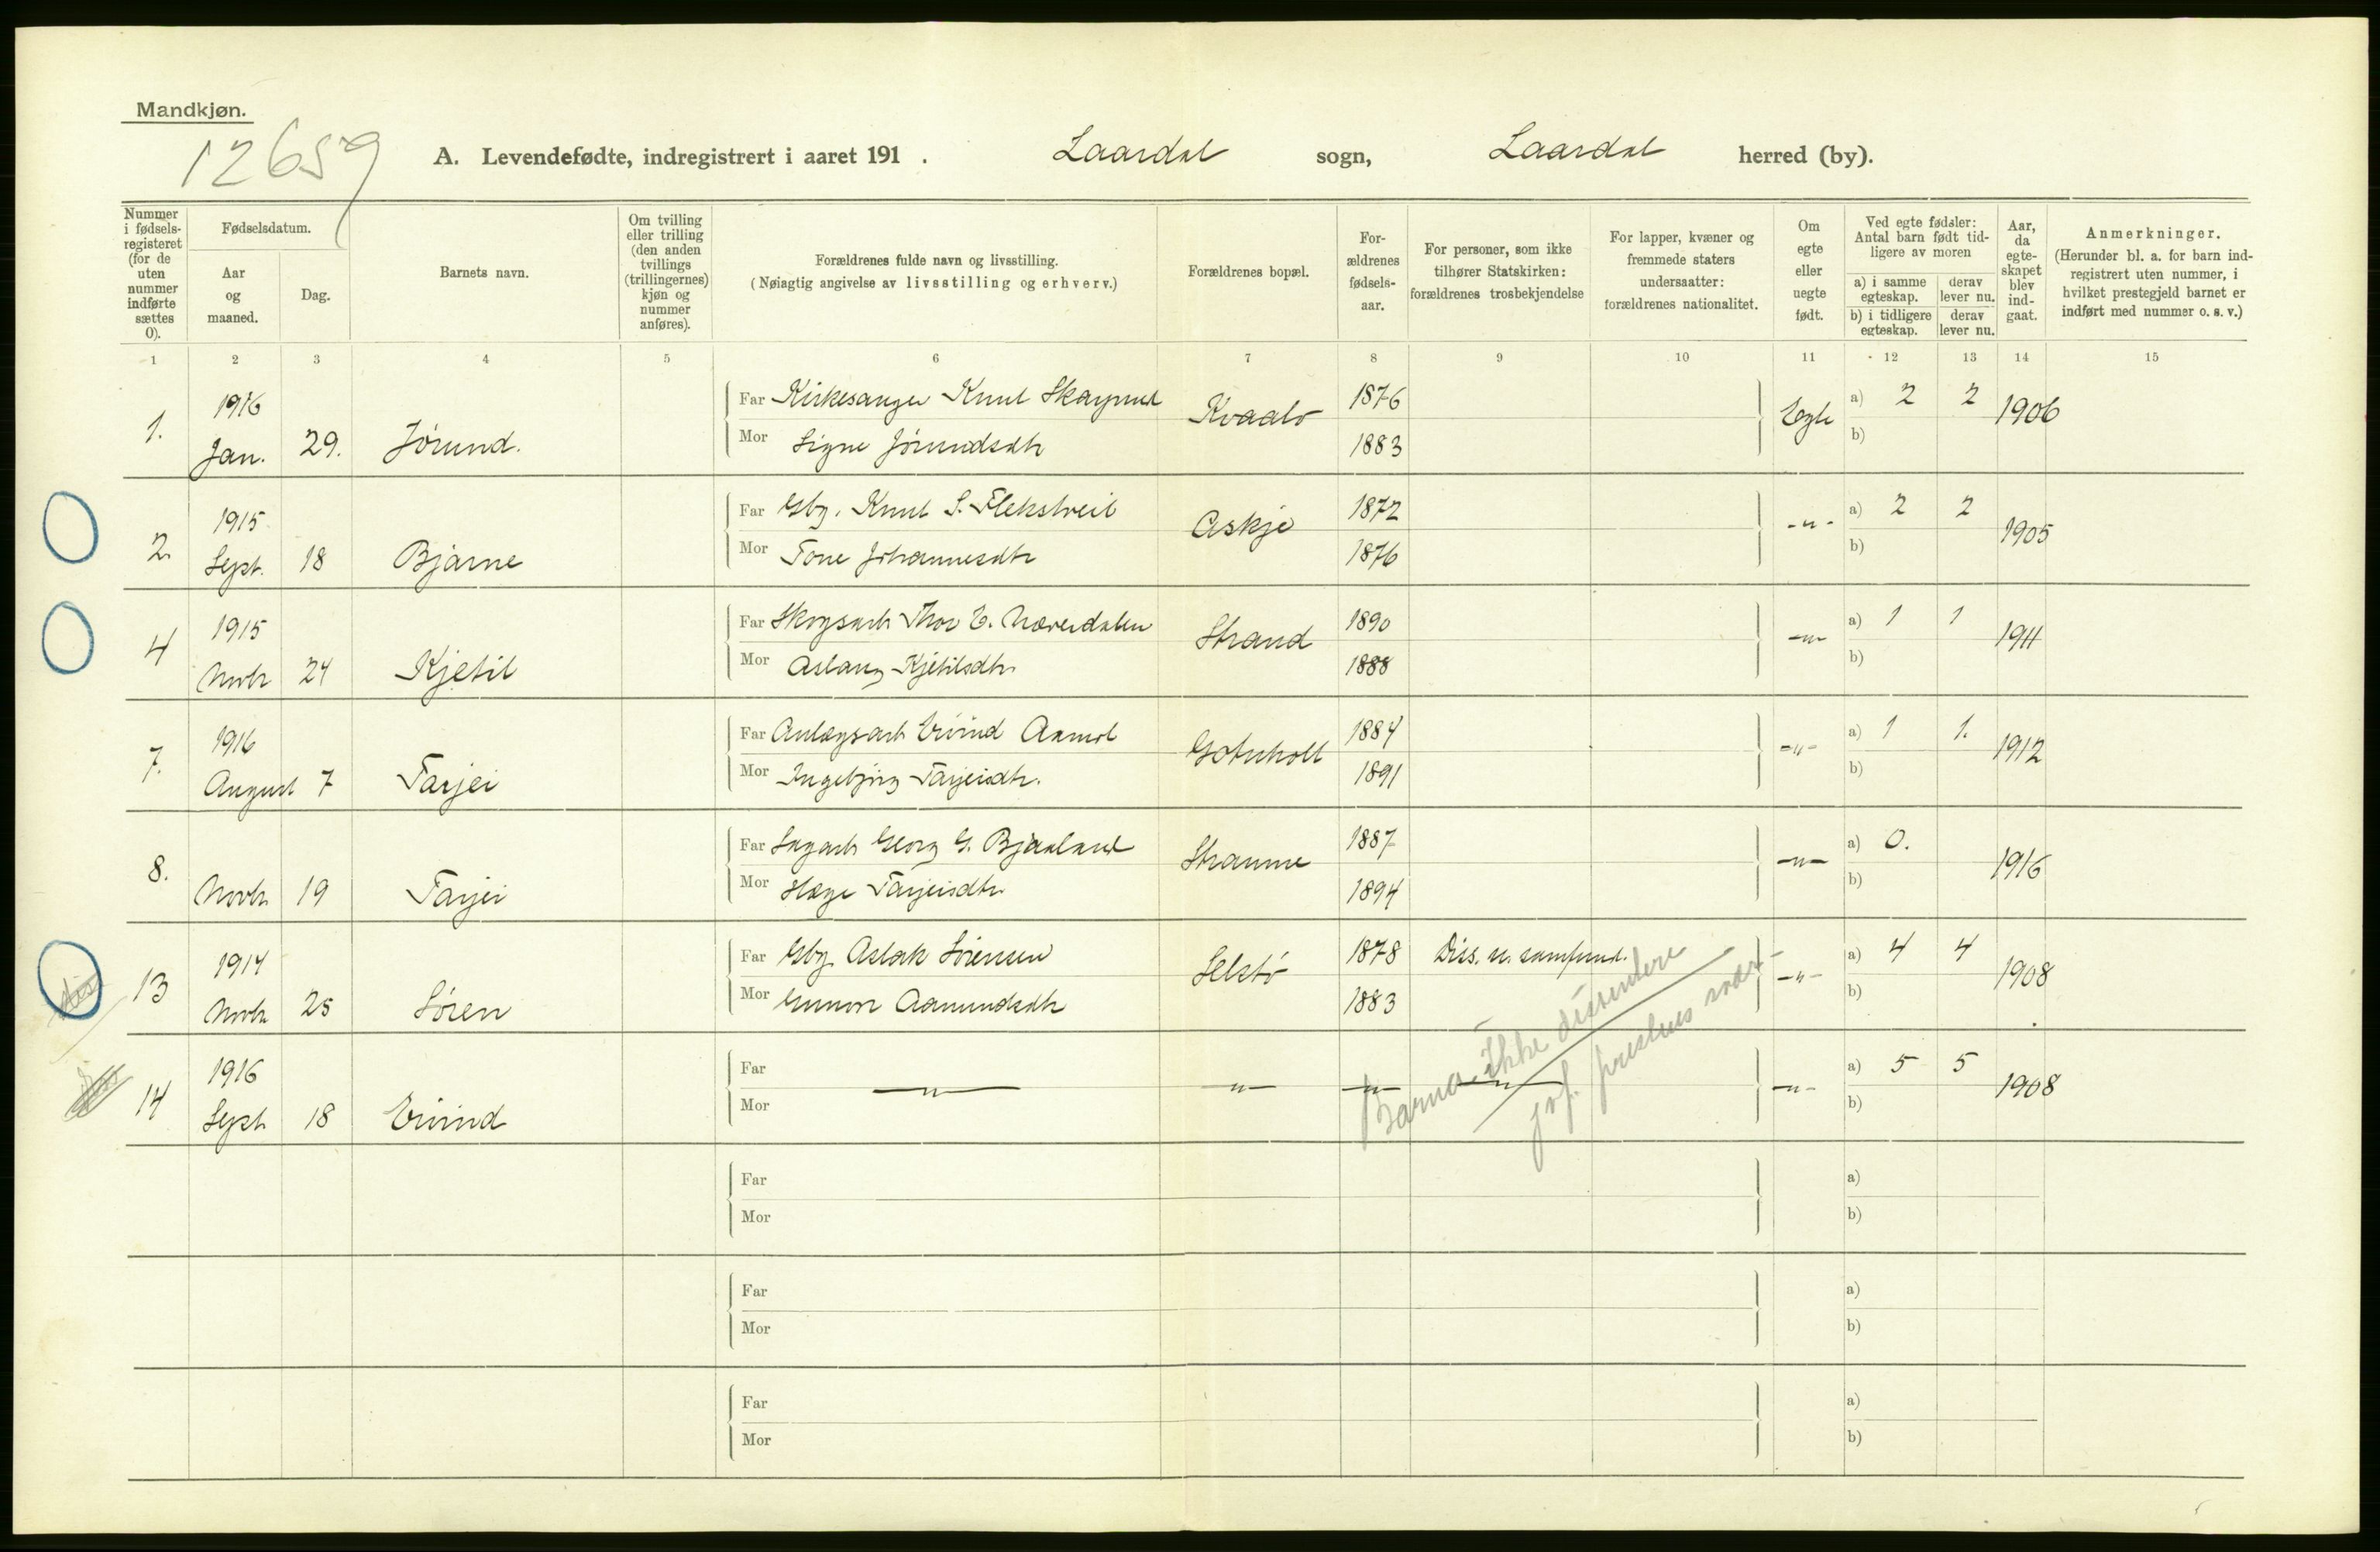 Mandkjøn.
12659
A. Levendefødte, indregistrert i aaret 191 . Laardal sogn, Laardal herred (by).
Nummer i fødsels-registeret (for de uten nummer indførte sættes 0).
Fødselsdatum.
Aar og maaned.
Dag.
Barnets navn.
Om tvilling eller trilling (den anden tvillings (trillingernes) kjøn og nummer anføres).
Forældrenes fulde navn og livsstilling.
(Nøiagtig angivelse av livsstilling og erhverv.)
Forældrenes bopæl.
For-ældrenes fødsels-aar.
For personer, som ikke tilhører Statskirken: forældrenes trosbekjendelse
For lapper, kvæner og fremmede staters undersaatter: forældrenes nationalitet.
Om egte eller uegte født.
Ved egte fødsler: Antal barn født tid-ligere av moren
a) i samme egteskap.
derav lever nu.
b) i tidligere egteskap.
derav lever nu.
Aar, da egte-skapet blev ind-gaat.
Anmerkninger.
(Herunder bl. a. for barn ind-registrert uten nummer, i hvilket prestegjeld barnet er indført med nummer o. s. v.)
1 2 3 4 5 6 7 8 9 10 11 12 13 14 15
1. 1916 Jan. 29. Jørund.
Far Kirkesanger Knut Kvaalo 1876 Egte a) 2 2 1906
Mor Signe Jørundsdtr 1883 b)
2. 1915 Sept. 18 Bjarne
Far Gbr. Knut S. Flekstveit Askje 1872 -"- a) 2 2 1905
Mor Tone Johannesdtr 1876 b)
4 1915 Novbr 24 Kjetil
Far Skogsarb Thor E. Nordalen Strand 1890 -"- a) 1 1 1911
Mor Aslaug Kjetilsdtr. 1888 b)
7. 1916 August 7 Tarjei
Far Anlægsarb Eivind 1884 -"- a) 1 1. 1912
Mor Ingebjørg Tarjeisdtr. 1891 b)
8. Novbr 19 Tarjei
Far Sagarb Georg G. Bjaaland Straume 1887 -"- a) 0. 1916
Mor Hæge Tarjeisdtr 1894 b)
13 1914 Novbr 25 Søren
Far Gbr. Aslak Sørensen Selstø 1878 Diss. u. samfund. -"- a) 4 4 1908
Mor Gunvor Aamundsdtr 1883 b)
14 1916 Sept 18 Eivind
Far -"- -"- -"- -"- -"- a) 5 5 1908
Mor b)
Barna ikke dissentere
jvf. prestens svar
Far a)
Mor b)
Far a)
Mor b)
Far a)
Mor b)